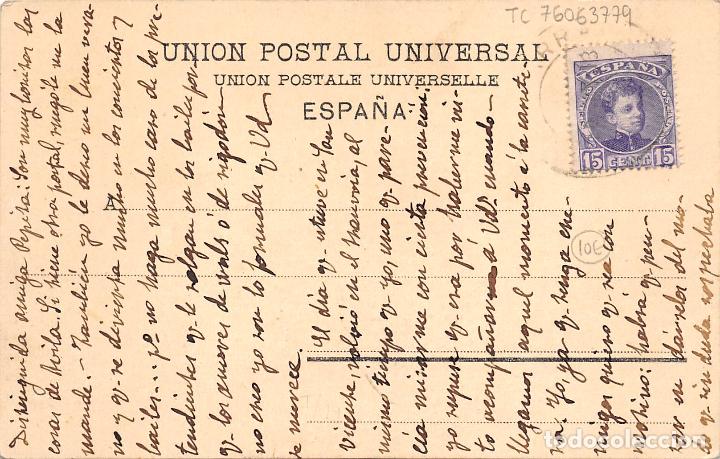 TC 76063779
UNION POSTAL UNIVERSAL
UNION POSTALE UNIVERSELLE
ESPAÑA
A
CORREOS
ESPAÑA
15 CENT. 15
10€
Distinguida amiga Pepita: Son muy bonitas las
cosas de Avila. Si tiene otra postal, ruégole me la
mande – También yo le deseo un buen vera-
no y q. se divierta mucho en los conciertos y
bailes... pº no haga mucho caso de los pre-
tendientes q. le salgan en los bailes por
q. los amores de vals ó de rigodón
no creo yo son lo formales q. Vd
se merece.
El día q. estuve en San
Vicente, volvió en el tranvía, al
mismo tiempo q. yo, uno q. pare-
cía mirarme con cierta prevención:
yo supuse q. era por haberme vis-
to acompañando á Vds cuando
llegamos aquel momento á la caseti-
ta. Yo, ya q. tenga ene-
migos quiero q. sea con
motivo: habrá q. pen-
sar en dárselos del mo-
do q. sin duda sospechaba
todocoleccion